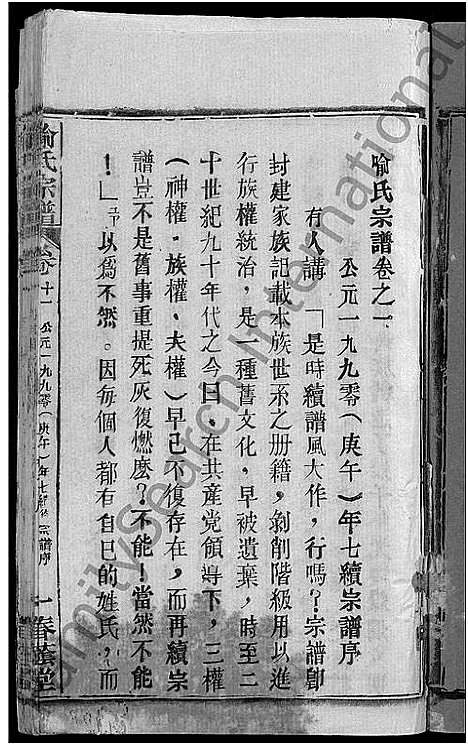 喻氏宗譜卷之一
公元一九九零(庚午)年七續宗譜序
有人講「是時續譜風大作,行嗎?宗譜卽
封建家族記載本族世系之册籍,剝削階級用以進
行族權統治,是一種舊文化,早被遺棄,時至二
十世紀九十年代之今日,在共産党領導下,三權
(神權·族權、夫權)早已不復存在,而再續宗
譜豈不是舊事重提死灰復燃麽?不能!當然不能
!」予以爲不然。因每個人都有自已的姓氏,而
喻氏宗譜 卷 十一 公元一九九零(庚午)年七續 宗譜序 一 春蔭堂
FamilySearch International